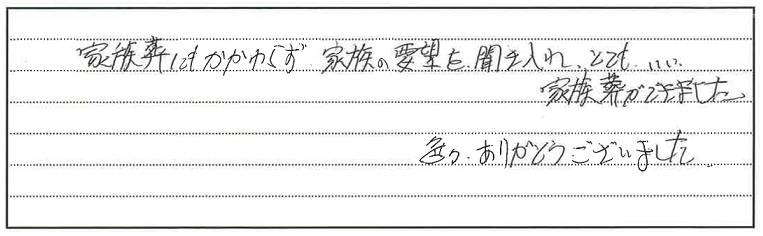 家族葬にもかかわらず 家族の要望を聞き入れ、とても いい
家族葬ができました。
色々、ありがとうございました。